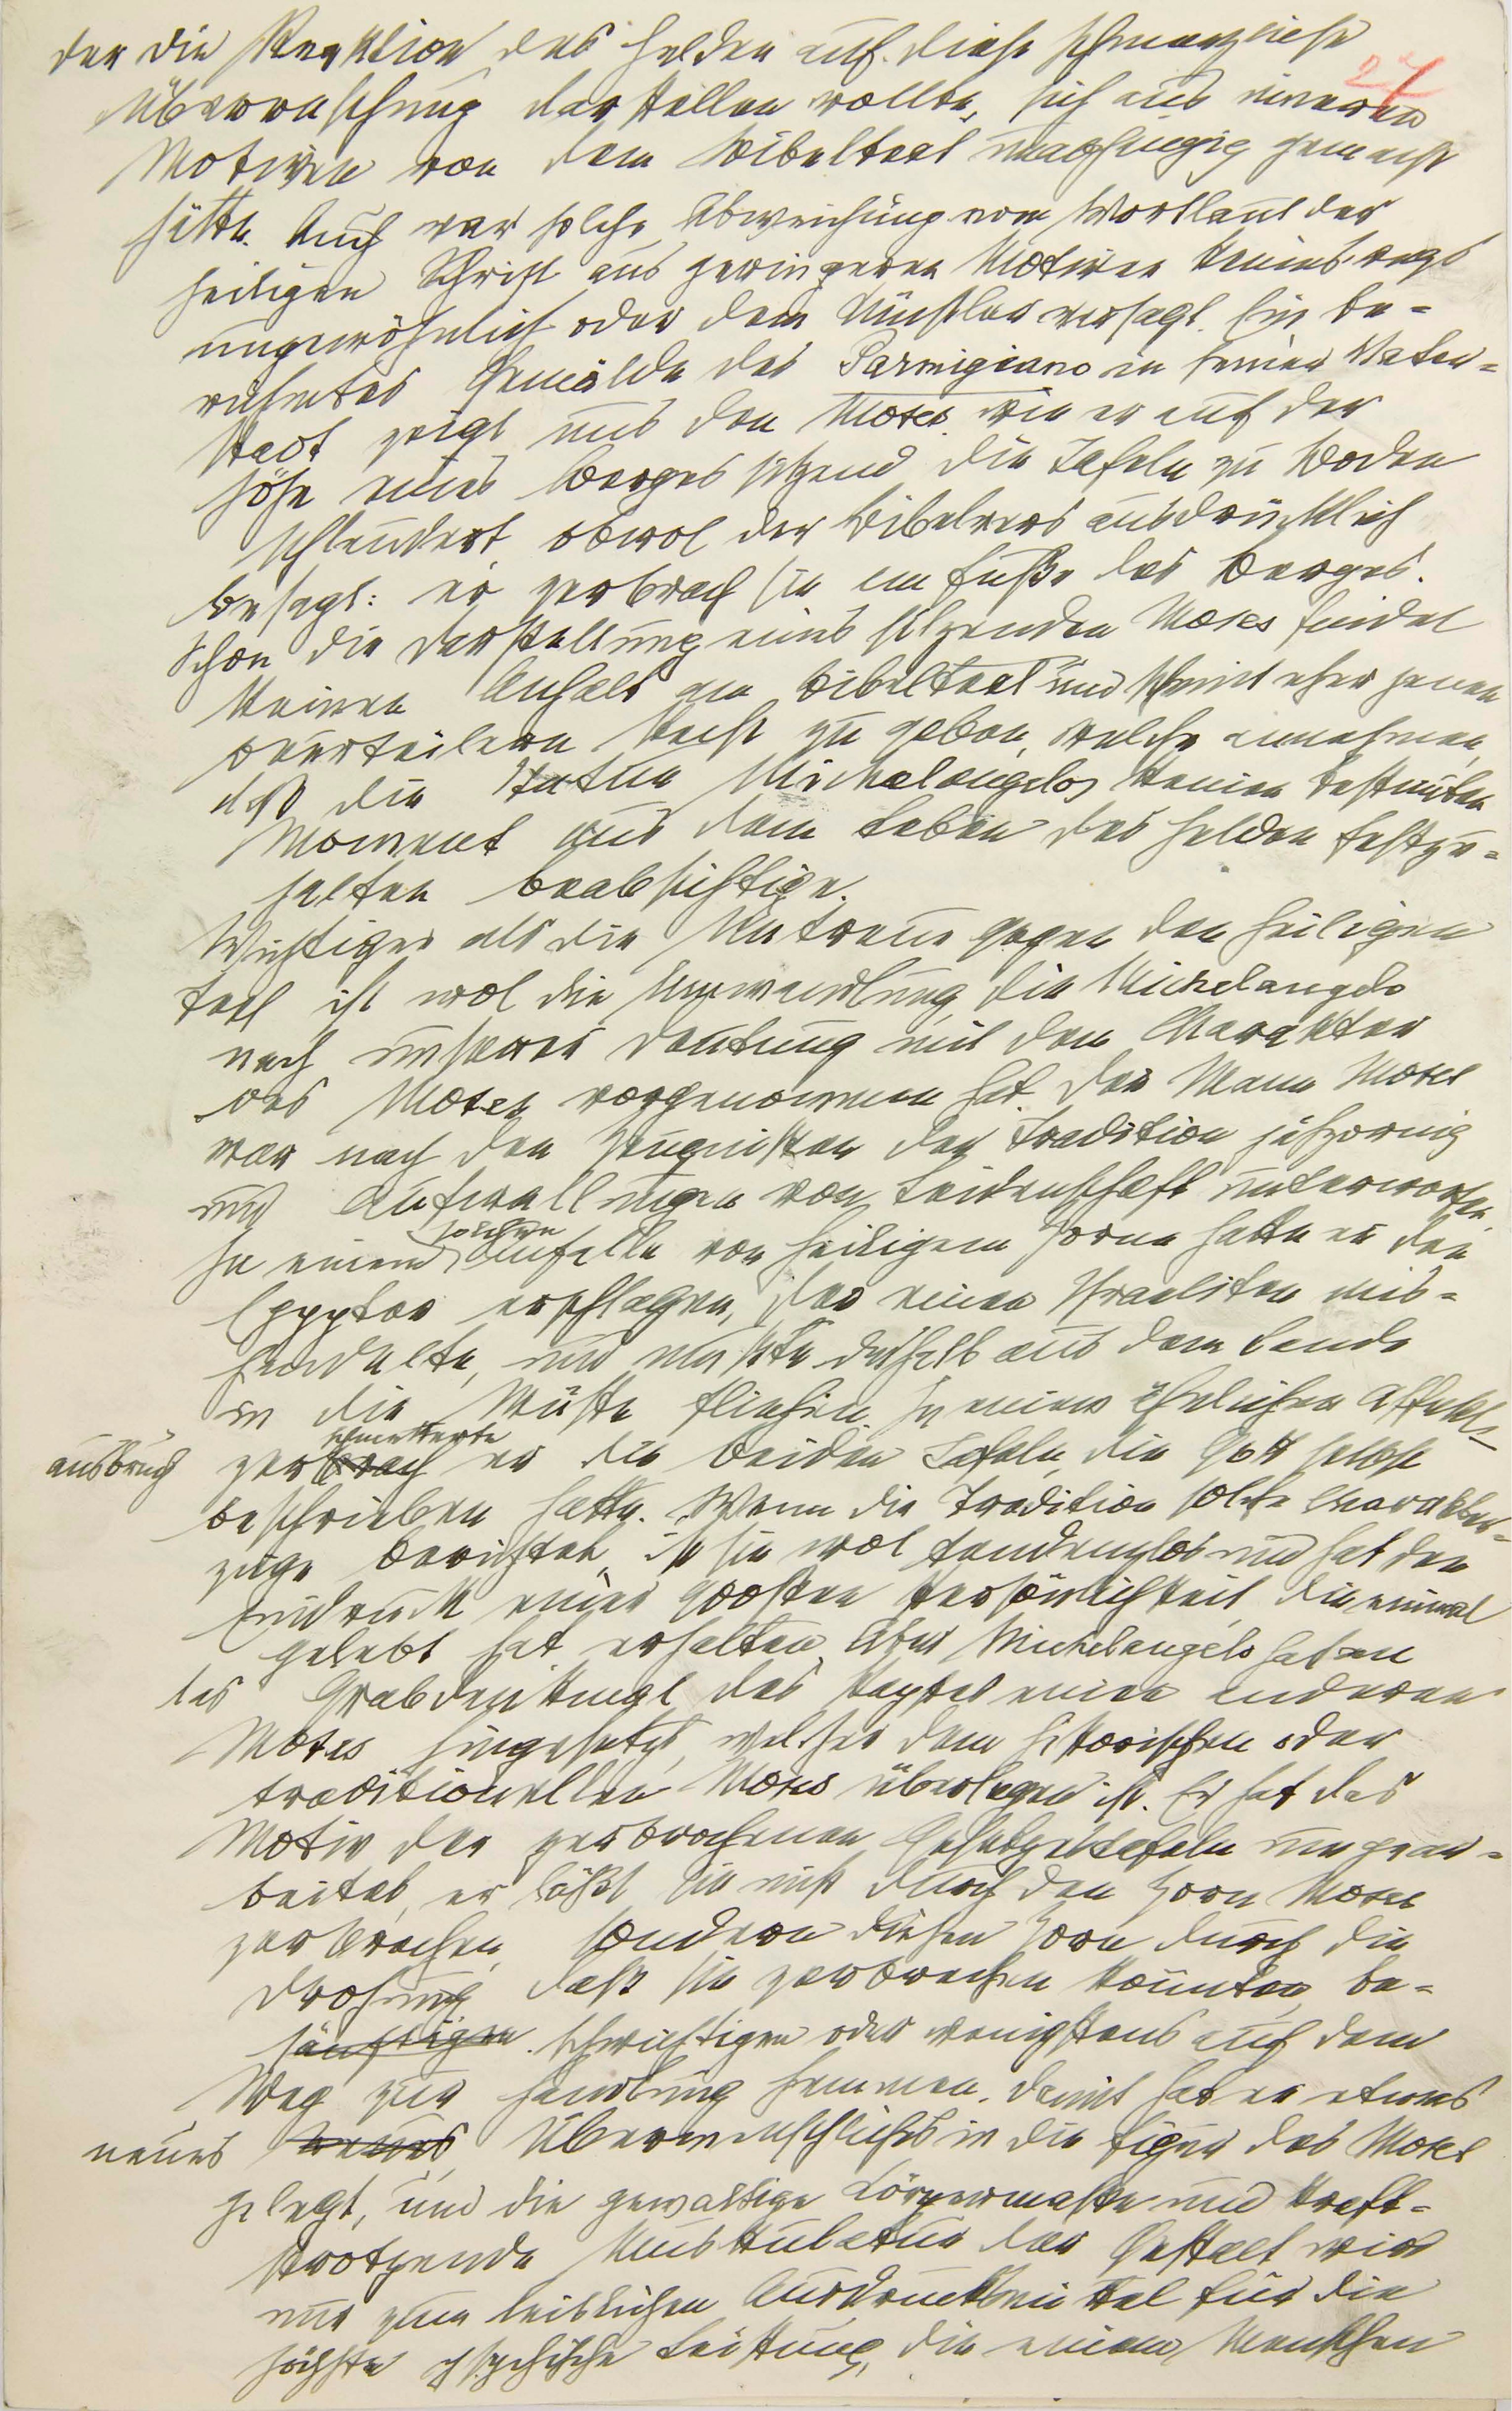 27
der die Reaktion des Helden auf diese schmerzliche
Überraschung darstellen wollte, sich aus inneren
Motiven von dem Bibeltext unabhängig gemacht
hätte. Auch war solche Abweichung vom Wortlaut der
heiligen Schrift aus geringeren Motiven keineswegs
ungewöhnlich oder dem Künstler versagt. Ein be-
rühmtes Gemälde des Parmigiano in seiner Vater-
stadt zeigt uns den Moses, wie er auf der
Höhe eines Berges sitzend die Tafeln zu Boden
schleudert, obwol der Bibelvers ausdrücklich
besagt: er zerbrach sie am Fuße des Berges.
Schon die Darstellung eines sitzenden Moses findet
keinen Anhalt am Bibeltext und scheint eher jenen
Beurteilern Recht zu geben, welche annehmen,
daß die Statue Michelangelos keinen bestimten
Moment aus dem Leben des Helden festzu-
halten beabsichtige.
Wichtiger als die Untreue gegen den heiligen
Text ist wol die Umwandlung, die Michelangelo
nach unserer Deutung mit dem Charakter
des Moses vorgenommen hat. Der Mann Moses
war nach den Zeugnissen der Tradition jähzornig
und Aufwallungen von Leidenschaft unterworfen.
In einem solchen Anfalle von heiligem Zorne hatte er den
Egypter erschlagen, der einen Israeliten mis-
handelte, und mußte deshalb aus dem Lande
in die Wüste fliehen. In einem ähnlichen Affekt-
ausbruch zerbrach schmetterte er die beiden Tafeln, die Gott selbst
beschrieben hatte. Wenn die Tradition solche Charakter-
züge berichtet, ist sie wol tendenzlos und hat den
Eindruck einer großen Persönlichkeit, die einmal
gelebt hat, erhalten. Aber Michelangelo hat an
das Grabdenkmal des Papstes einen anderen
Moses hingesetzt, welcher dem historischen oder
traditionellen Moses überlegen ist. Er hat das
Motiv der zerbrochenen Gesetzestafeln umgear-
beitet, er läßt sie nicht durch den Zorn Moses
zerbrechen, sondern diesen Zorn durch die
Drohung, daß sie zerbrechen könnten, be-
sänftigen schwichtigen oder wenigstens auf dem
Weg zur Handlung hemmen. Damit hat er etwas
neues neues Übermenschliches in die Figur des Moses
gelegt, und die gewaltige Körpermasse und kraft-
strotzende Muskulatur der Gestalt wird
nur zum leiblichen Ausdrucksmittel für die
höchste psychische Leistung, die einem Menschen